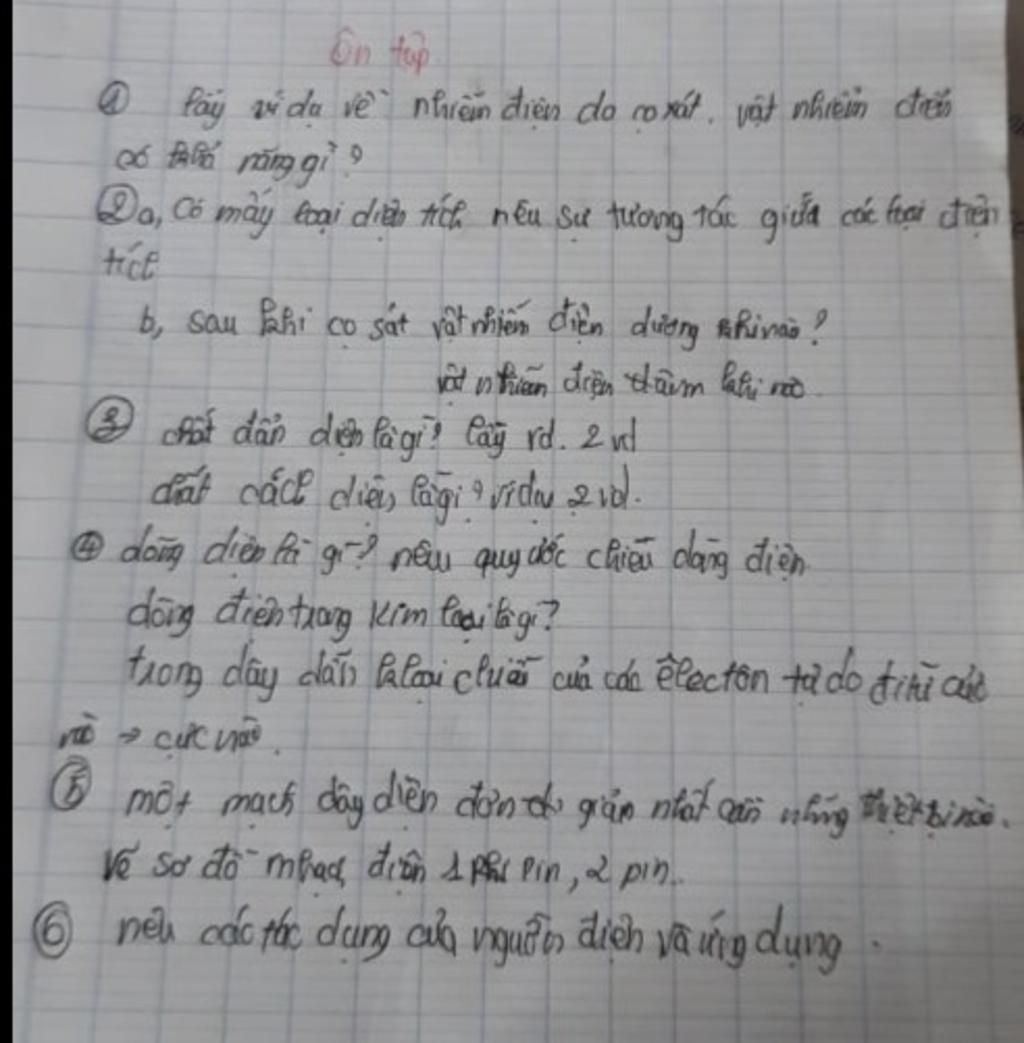 Ôn tập
① Lấy ví dụ về nhiễm điện do cọ xát. vật nhiễm điện
có khả năng gì?
② a, Có mấy loại điện tích nêu sự tương tác giữa các loại điện
tích
b, sau khi cọ sát vật nhiễm điện dương khi nào?
vật nhiễm điện âm khi nào
③ chất dẫn điện là gì? lấy vd. 2 vd
chất cách điện là gì? ví dụ 2 vd.
④ dòng điện là gì? nêu quy ước chiều dòng điện
dòng điện trong kim loại là gì?
trong dây dẫn kloại chiều của các êlectôn tự do đi từ cực
nào → cực nào.
⑤ một mạch dây điện đơn giản nhất cần những thiết bị nào.
vẽ sơ đồ mạch điện 1 pin, 2 pin.
⑥ nêu các tác dụng của nguồn điện và ứng dụng.